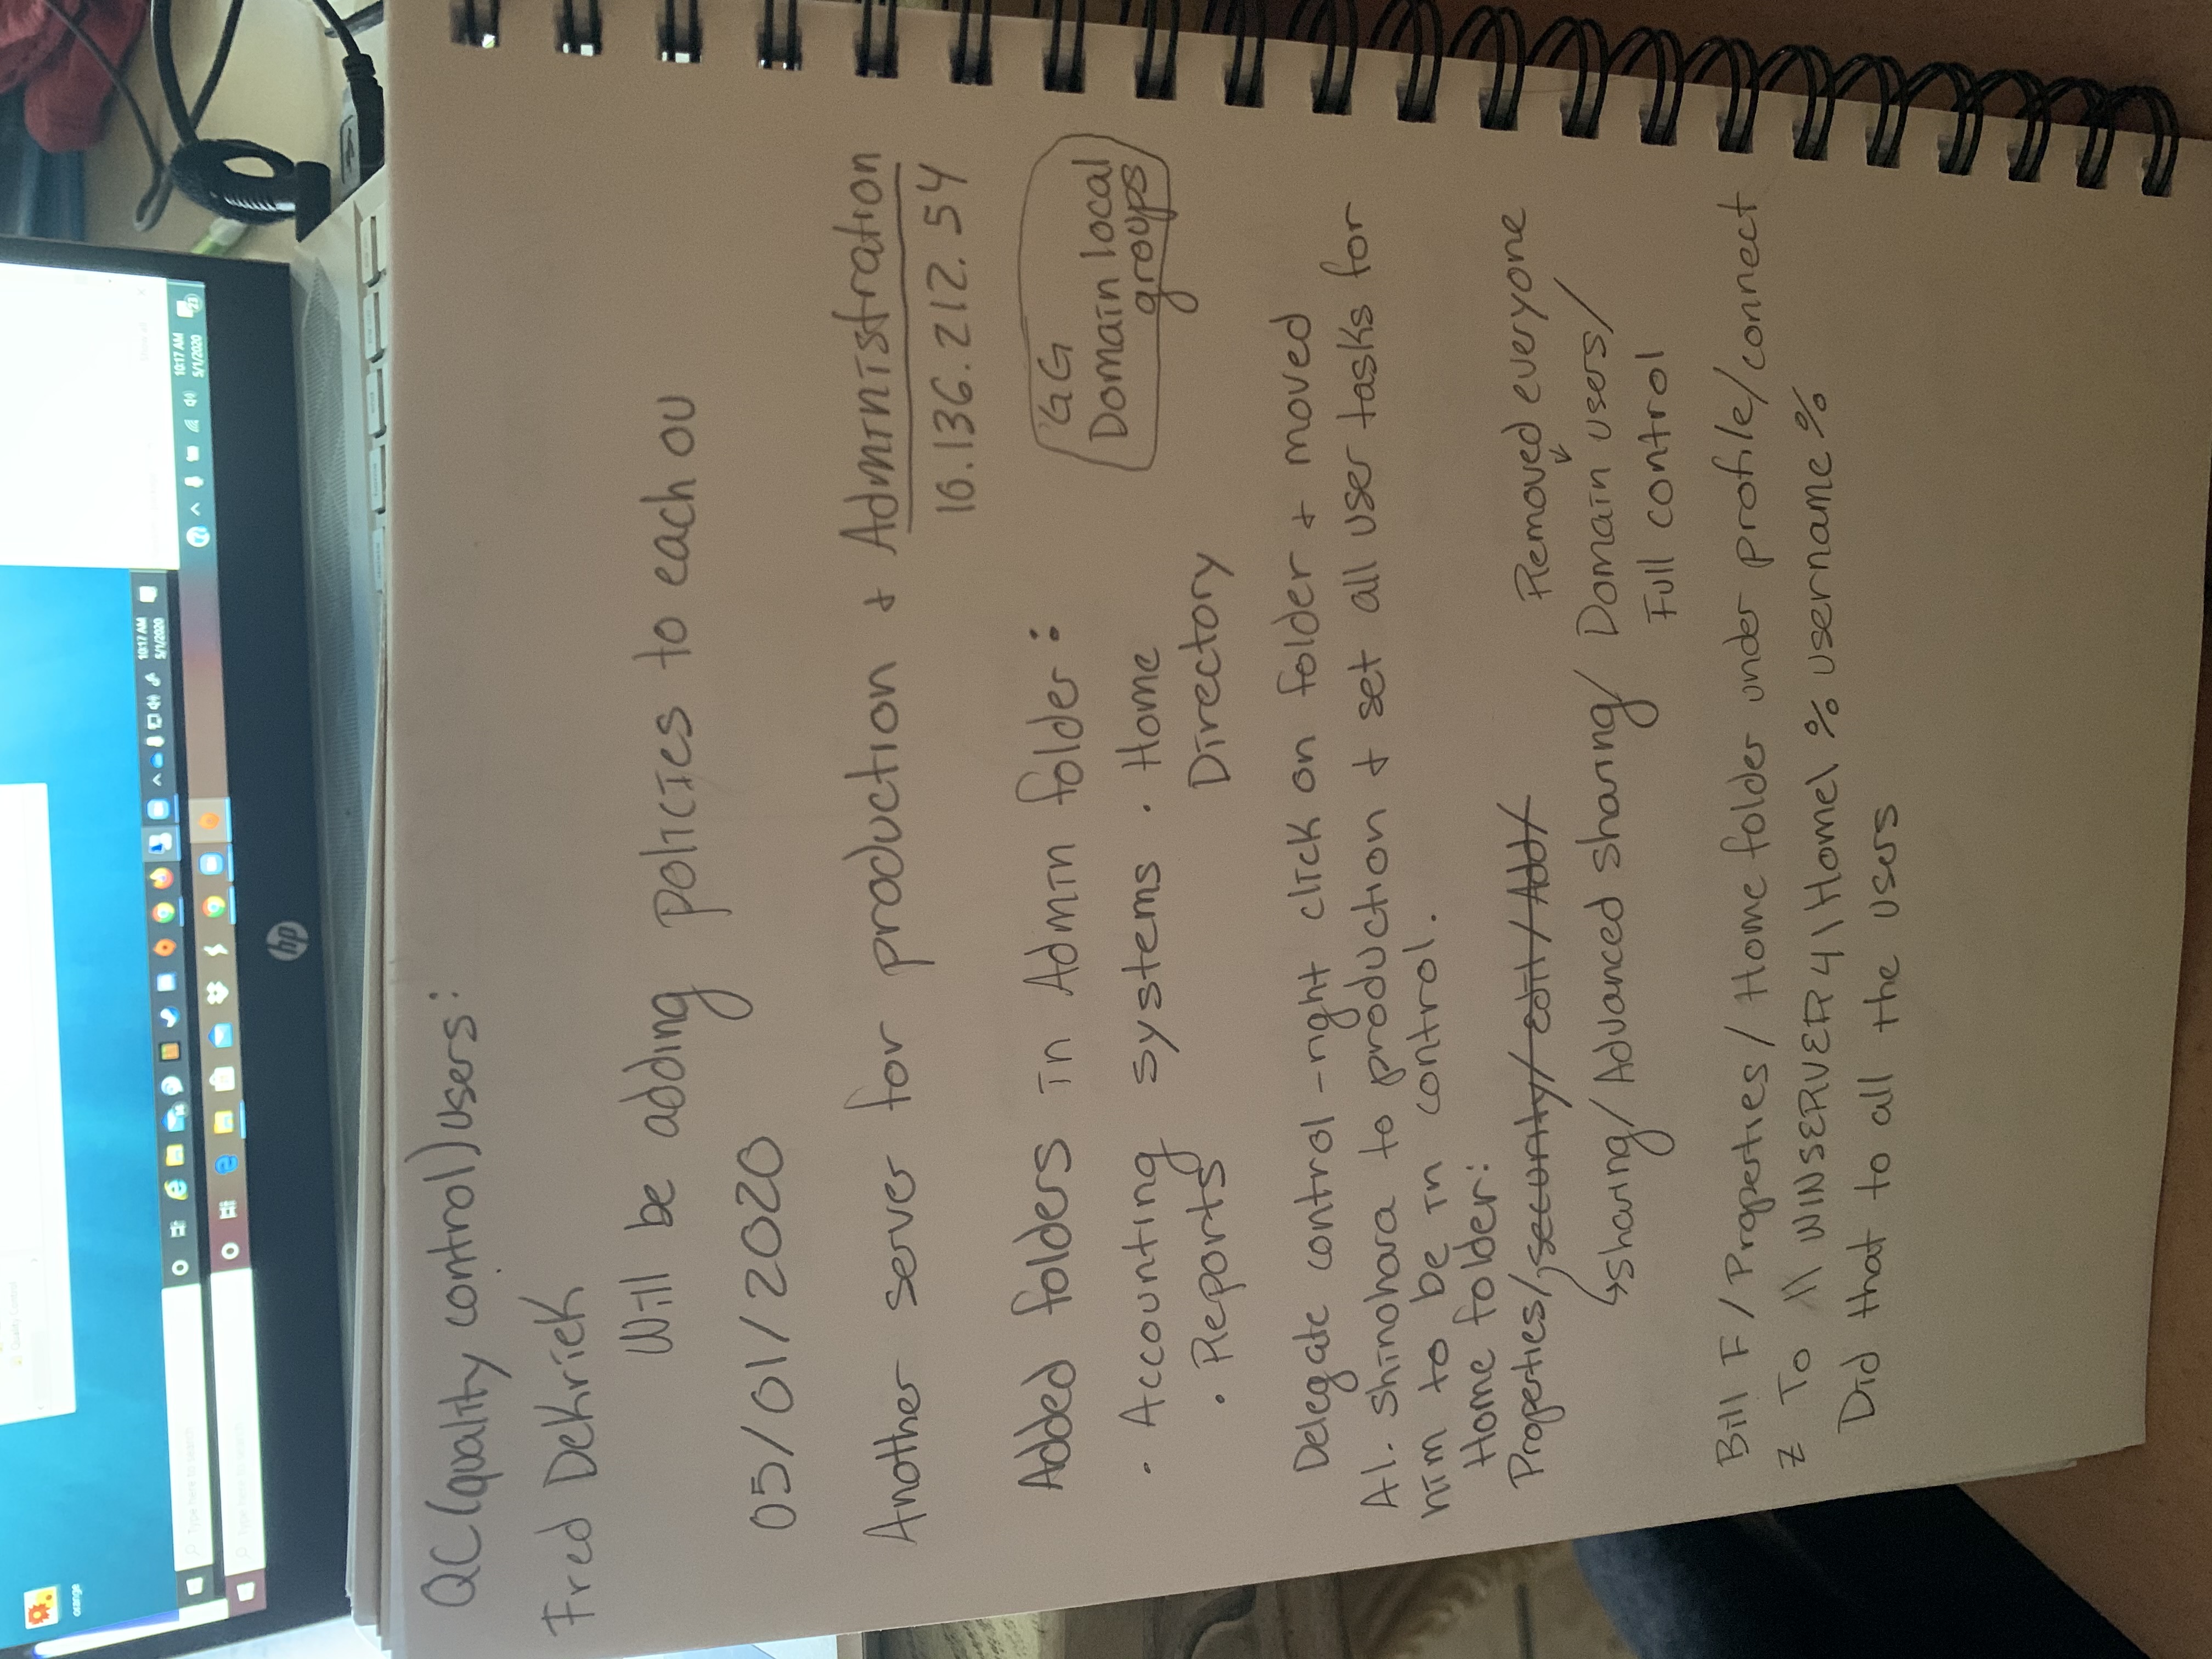 Quality Control
orange
Type here to search
10:17 AM
5/1/2020
Show all
Type here to search
10:17 AM
5/1/2020
23
hp
QC (quality control) users:
Fred DeKrieK
Will be adding policies to each ou
05/01/2020
Another server for production + Administration
10.136.212.54
Added folders in Admin folder:
GG
Domain local
groups
· Accounting systems · Home
· Reports Directory
Delegate control - right click on folder + moved
Al. Shinohara to production + set all user tasks for
him to be in control.
Home folder:
Properties/ security/ Edit/ Add/
Removed everyone
Sharing/ Advanced sharing/ Domain users/
Full control
Bill F / Properties / Home folder under profile/connect
Z To \\ WINSERVER4\Home\ % username %
Did that to all the users